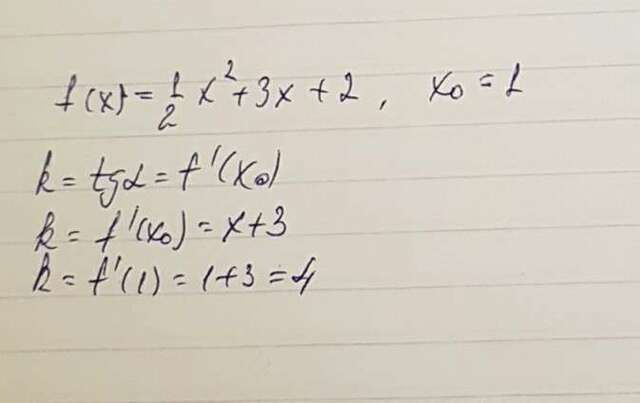 f(x) = 1/2 x² + 3x + 2 , x₀ = 1
k = tgα = f'(x₀)
k = f'(x₀) = x+3
k = f'(1) = 1+3 = 4